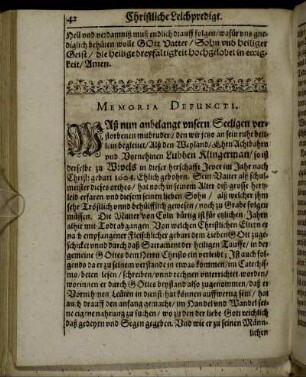 42 Christliche Leichpredigt.
Hell und verdamniß muß endlich drauff folgen/ wafür uns gne-
diglich behüten wolle GOtt Vatter/ Sohn und heiliger
Geist/ die heilige dreyfaltigkeit hochgelobet in ewig-
keit/ Amen.
MEMORIA DEFUNCTI.
WAß nun anbelangt unsern Seeligen ver-
storbenen mitbruder/ den wir jetzo an sein ruhe bett-
lein begleitet/ Alß den Weyland/ Ehrn Achtbahrn
und Vornehmen Lubben Klingerman/ so ist
derselbe zu in dieser herschafft Jever im Jahr nach
Christi geburt 1604. Ehlich gebohrn. Sein Vater alß schul-
meister dieses orthes/ hat noch in seinem Alter diß grosse hertz-
leid erfaren und diesem seinem lieben Sohn/ alß welcher ihm
sehr Tröstlich und behülfflich gewesen/ noch zu Grabe folgen
müssen. Die Mutter von Cöln bürtig ist für etlichen Jahrn
alhie mit Tod abgangen Von welchen Christlichen Eltern er
nach empfangener fleischlicher geburt dem lieben GOtt zuge-
schicket und durch daß Sacrament der heiligen Tauffe/ in der
gemeine Gottes dem Herrn Christo ein verleibt; Ist auch folgen-
ds da er zu seinem verstande in etwas kommen/ im Catechis-
mo/ beten lesen/ schreiben/ und rechnen unterrichtet worden/
worinnen er durch Gottes beystand also zugenommen/ daß er
Vornehmen Leuten in dienst hat können auffwertig sein/ hat
auch drauff den anfang gemacht/ im Handel und Wandel sei-
ne eigene nahrung zu suchen/ wo zu den der liebe Gott reichlich
daß gedeyen und Segen gegeben. Und wie er zu seinen Männ-
lichen